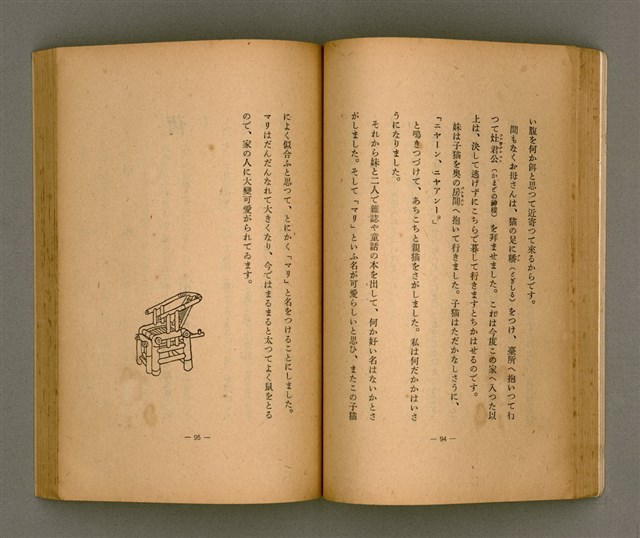 い腹を何か餌と思つて近寄つて来るからです。
間もなくお母さんは、猫の足に糖（とぎしる）をつけ、臺所へ抱いつて行
つて灶君公（かまどの神様）を拜ませました。これは今度この家へ入つた以
上は、決して逃げずにこちらで暮して行きますとちかはせるのです。
妹は子猫を奥の房間へ抱いて行きました。子猫はただかなしさうに、
「ニヤーン、ニヤアンー。」
と鳴きつづけて、あちこちと親猫をさがしました。私は何だかかはいさ
うになりました。
それから妹と二人で雜誌や童話の本を出して、何か好い名はないかとさ
がしました。そして「マリ」といふ名が可愛らしいと思ひ、またこの子猫
— 94 —
によく似合ふと思つて、とにかく「マリ」と名をつけることにしました。
マリはだんだんなれて大きくなり、今ではまるまると太つてよく鼠をとる
ので、家の人に大變可愛がられてゐます。
— 95 —